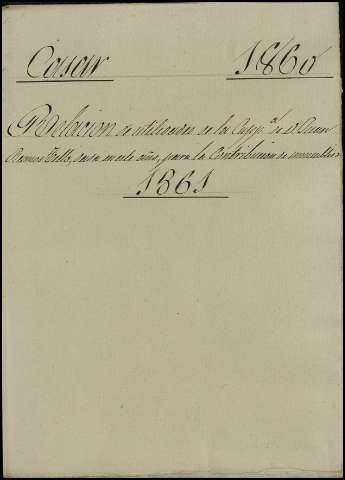 Casar 1860
Relacion de utilidades de la Capp.ª de D. Juan
Ramos Tello, dada en este año, para la Contribucion de inmuebles
1861